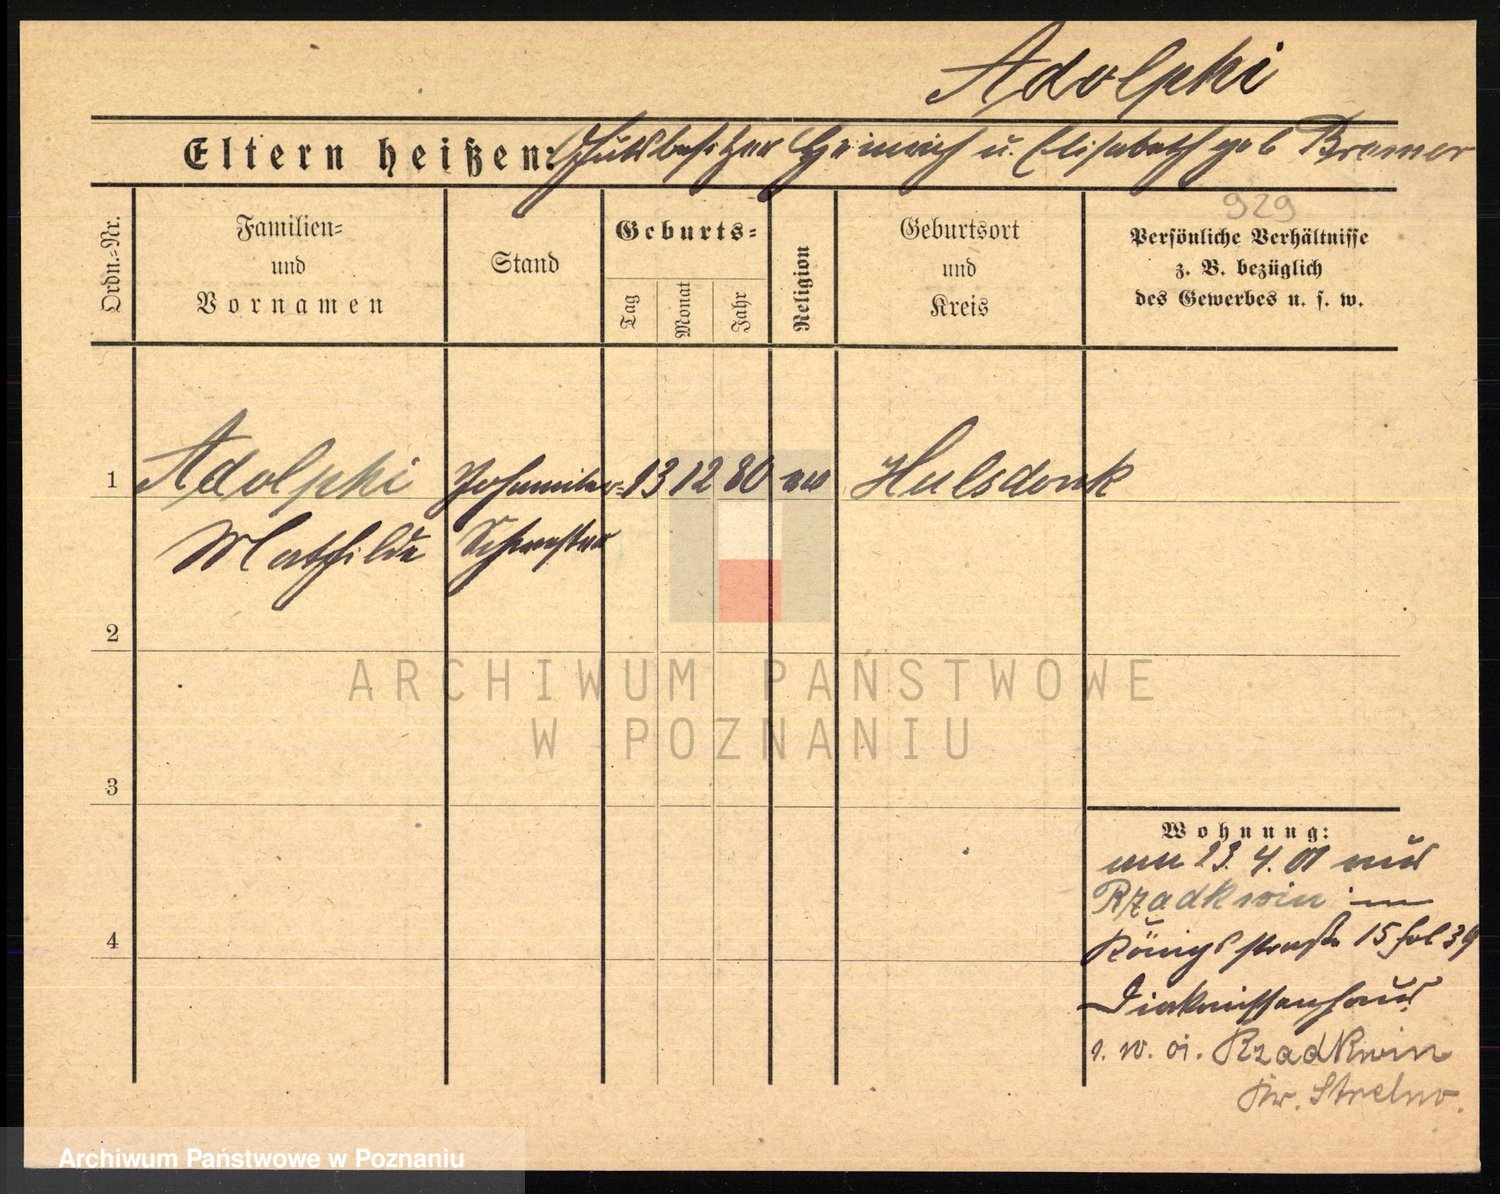 Adolphi
Eltern heißen: Gutsbesitzer Heinrich u. Elisabeth geb Bremer
929
Ordn.=Nr.
Familien=
und
Vornamen
Stand
Geburts=
Tag
Monat
Jahr
Religion
Geburtsort
und
Kreis
Persönliche Verhältnisse
z. B. bezüglich
des Gewerbes u. s. w.
1 Adolphi Johanniter= 13 12 80 ev Hulsdonk
Mathilde Schwester
2
ARCHIWUM PAŃSTWOWE
W POZNANIU
3
4
Wohnung:
am 23. 4. 01 aus
Rzadkwin in
Königsstraße 15 fol 39
Diakonissenhaus
1. 10. 01. Rzadkwin
Kr. Strelno.
Archiwum Państwowe w Poznaniu